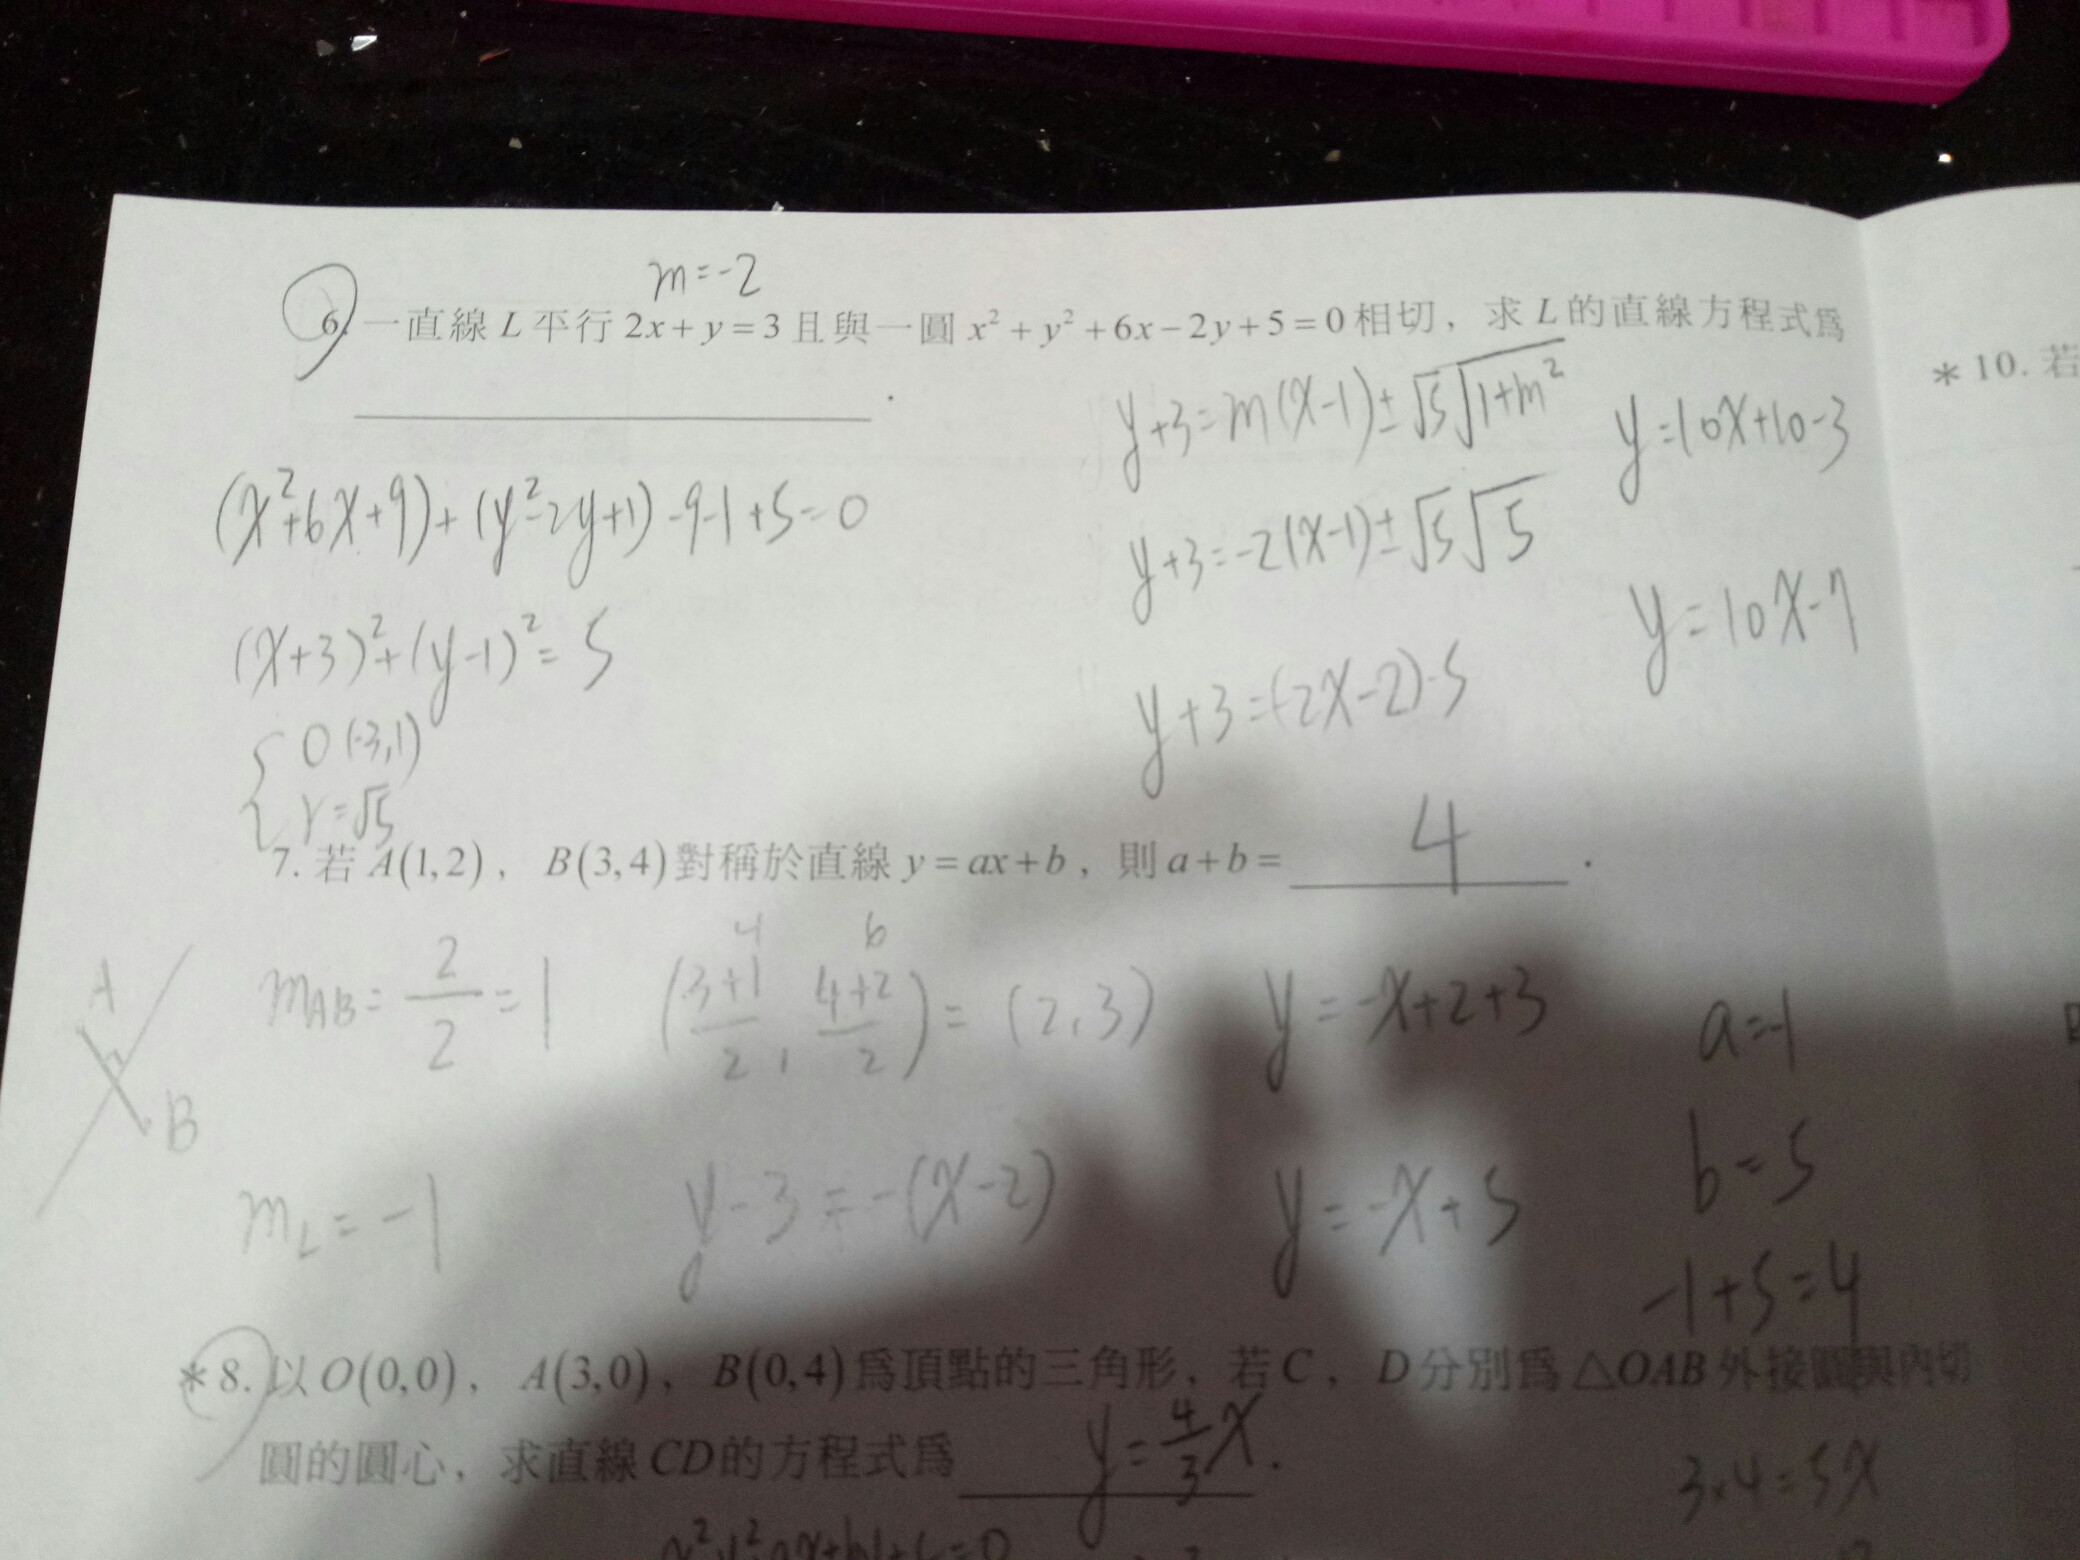 m=-2
6. 一直線 L 平行 2x+y=3 且與一圓 x²+y²+6x-2y+5=0 相切，求 L 的直線方程式爲
________.
* 10. 若
y+3=m(x-1)±√5√1+m²
y=10x+10-3
(x²+6x+9)+(y²-2y+1)-9-1+5=0
y+3=-2(x-1)±√5√5
y=10x-7
(x+3)²+(y-1)²=5
y+3=(-2x-2)·5
{O(-3,1)
r=√5
7. 若 A(1,2)， B(3,4) 對稱於直線 y=ax+b，則 a+b= 4 .
A
B
m_AB=2/2=1
4 6
(3+1/2, 4+2/2)=(2,3)
y=-x+2+3
a=-1
m_L=-1
y-3=-(x-2)
y=-x+5
b=5
-1+5=4
*8. 以 O(0,0)， A(3,0)， B(0,4) 爲頂點的三角形，若 C， D 分別爲 △OAB 外接圓與內切
圓的圓心，求直線 CD 的方程式爲 y=4/3x.
3×4=5x